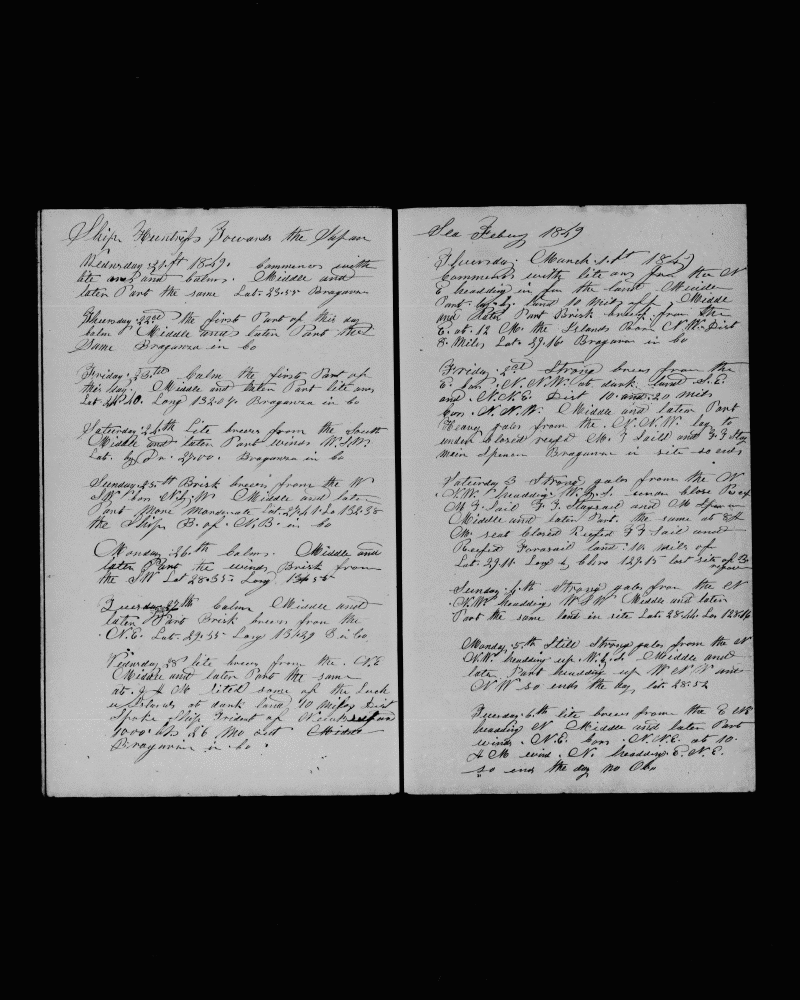 Ship Huntress Towards the Japan
Wednesday 21.st 1849. Commences with
lite and calms. Middle and
later Part the same Lat. 23.55 Braganza
Thursday 22nd the first Part of this day
calm Middle and later Part the
Same Braganza in Co
Friday 23rd Calm the first Part of
this Day. Middle and later Part lite
Lat 24.40. Long 132.07. Braganza in Co
Saturday 24th Lite brees from the South
Middle and later Part winds W.S.W.
Lat. by Dr. 27.00. Braganza in Co
Sunday 25th Brisk brees from the W
S.W. Middle and later
Part More Moderate Lat. 27.41. Lo 132.38
the Ship B. of N.B. in Co
Monday 26th Calms. Middle and
later Part the winds Brisk from
the SW Lat 28.35. Long
Tuesday 27th Calm Middle and
later Part Brisk brees from the
N.E. Lat. 29.55. Long 131.29 B in Co
Wensday 28 lite brees from the N.E
Middle and later Part the same
at M sited some of the Luch
u Islands at dark land 10 miles Dist
Spoke Ship Trident of
1000 bls 26 Mo out Middle
Braganza in Co
Sea Febuy 1849
Thursday March 1.st 1849
Comences with lite from the N
E heading in for the land Middle
Part land 10 miles off Middle
and later Part Brisk brees from the
E. at. 12 M. the Islands Bore N.W. Dist
8. Miles Lat. 29.16 Braganza in Co
Friday 2nd Strong brees from the
E. N.N.W. at dark land S.E.
and N.N.E. Dist 10. and 20 miles
N.N.W. Middle and later Part
Heavy gales from the N.N.W. lay to
under closed reefed M. T Saill and F. T Stay
main Spencer Braganza in site so ends
Saturday 3 Strong gales from the N
N.W. heading W.by.S. under Close Reef
M T. Sail F. T. Staysail and M Spencer
Middle and later Part. the same at 8 A
M. seat Closed Reefed F T Sail and
Reefed Foresail land 10 miles of
Lat. 29.11. Long by Chro 129.15 lost site of B
Sunday 4th Strong gales from the N
N.W. heading W S W Middle and later
Part the same land in site Lat. 28.44. Lon 128.16
Monday 5th Still Strong gales from the N
N.W. heading up W.by.S. Middle and
later Part heading up W N W and
N W so ends the day, Lat. 28.52
Tuesday 6th lite brees from the E NE
heading N Middle and later Part
winds N.E. N.N.E. at 10.
A M wind N. heading E.N.E.
so ends the day no Obs